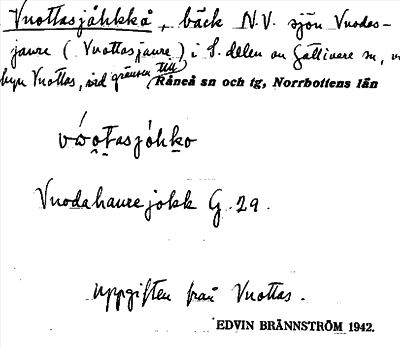 Vuottasjåhkkå, bäck N.V. sjön Vuodas-
jaure (Vuottasjaure) i S. delen av Gällivare sn, v
byn Vuottas, vid gränsen till Råneå sn och tg, Norrbottens län
vúo̯tasjóhko
Vuodahaurejokk G. 29.
uppgiften från Vuottas.
EDVIN BRÄNNSTRÖM 1942.